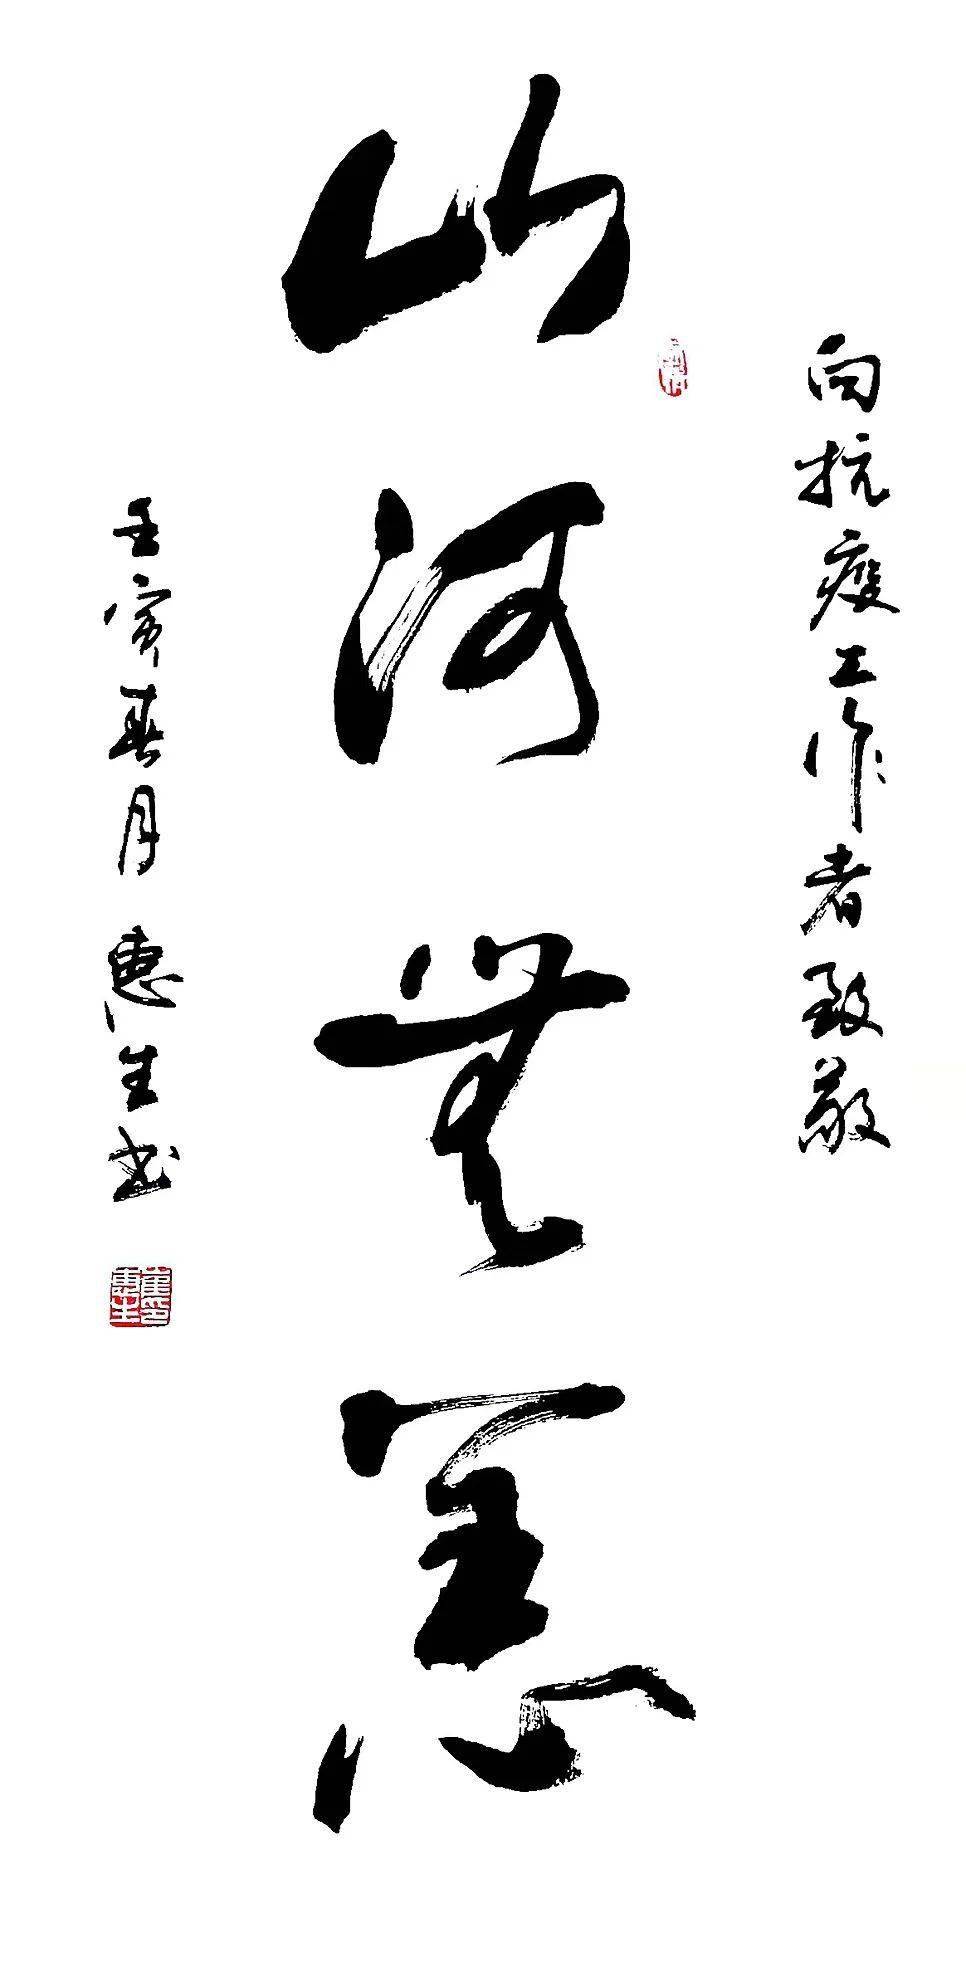 向抗疫工作者致敬
山河無恙
壬寅春月 惠生书